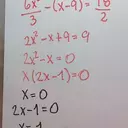 6x²/3 - (x-9) = 18/2
2x² - x + 9 = 9
2x² - x = 0
x(2x-1) = 0
x = 0
2x-1 = 0